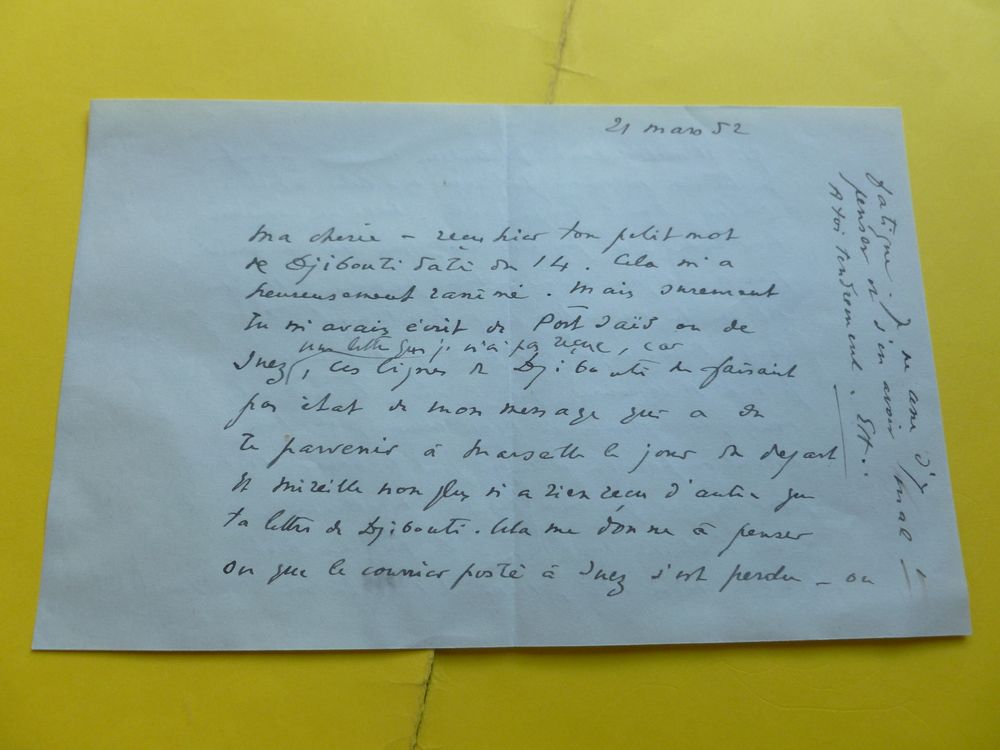 21 mars 52
Ma cherie – reçu hier ton petit mot
de Djibouti daté du 14. Cela m'a
heureusement ranimé. Mais surement
tu m'avais écrit de Port Saïd ou de
une lettre que je n'ai pas reçue, car
Suez, ces lignes de Djibouti ne faisant
pas état de mon message qui a du
te parvenir à Marseille le jour du depart
Et Mireille non plus n'a rien reçu d'autre que
ta lettre de Djibouti. Cela me donne à penser
ou que le courrier posté à Suez s'est perdu – ou
fatigue. Je ne d'y
penser et s'en avoir mal –
A toi tendrement.